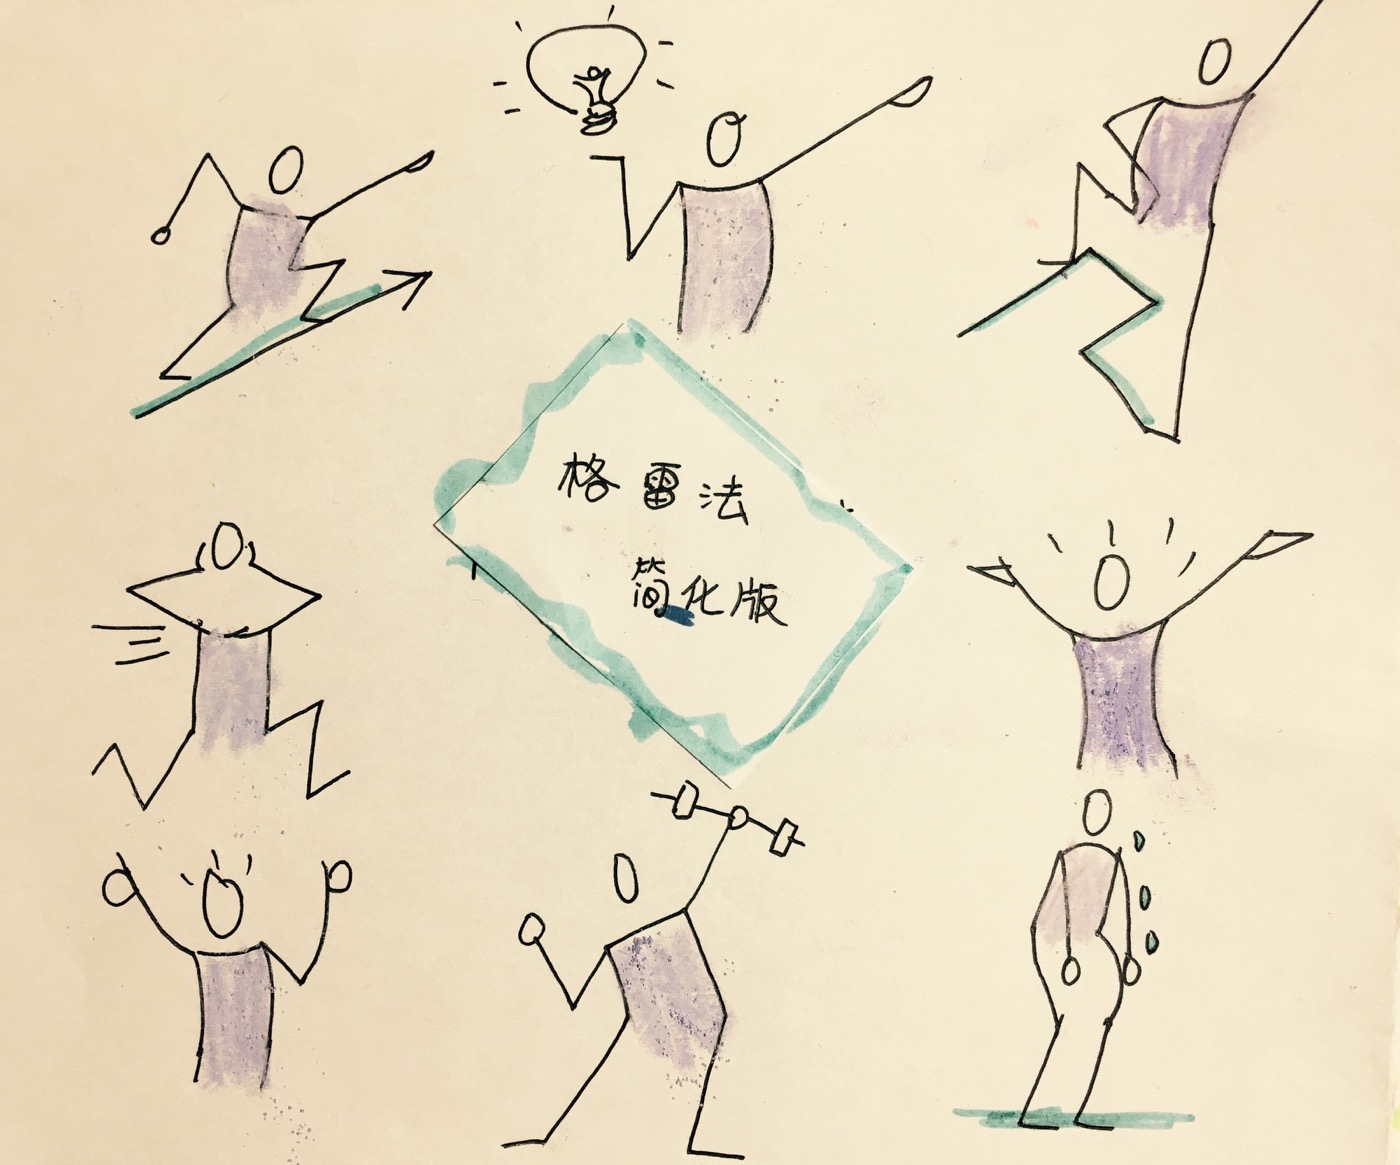 格雷法
简化版